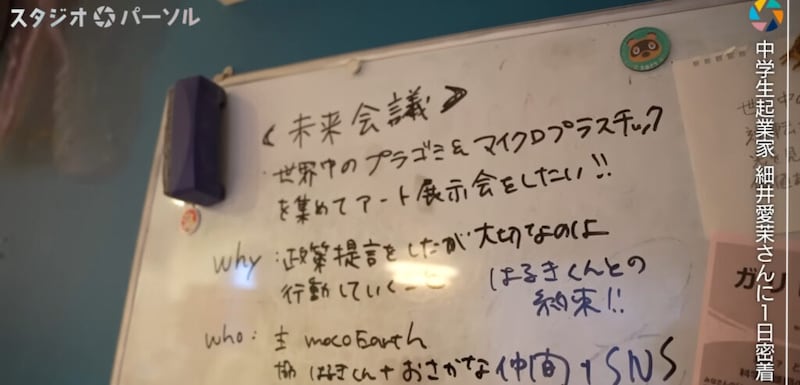 スタジオ パーソル
中学生起業家 細井愛茉さんに1日密着
〈未来会議〉
・世界中のプラゴミ&マイクロプラスチック
を集めてアート展示会をしたい!!
why:政策提言をしたが大切なのは
行動していくこと
はるきくんとの
約束!!
who:主 mocoEarth
協 はるきくん+おさかな仲間+SNS
ガリ